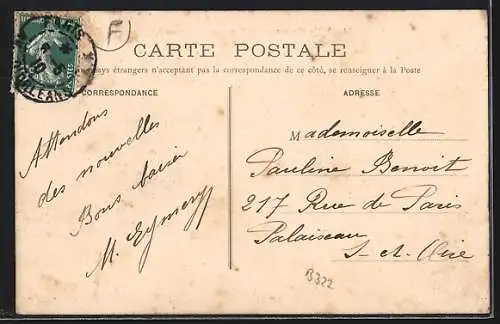 PARIS
ORLEANS
F
CARTE POSTALE
pays étrangers n'acceptant pas la correspondance de ce côté, se renseigner à la Poste
CORRESPONDANCE
ADRESSE
Attendons
des nouvelles
Bons baisers
M. Eymery
Mademoiselle
Pauline Benoit
217 Rue de Paris
Palaiseau
S-et-Oise
B322